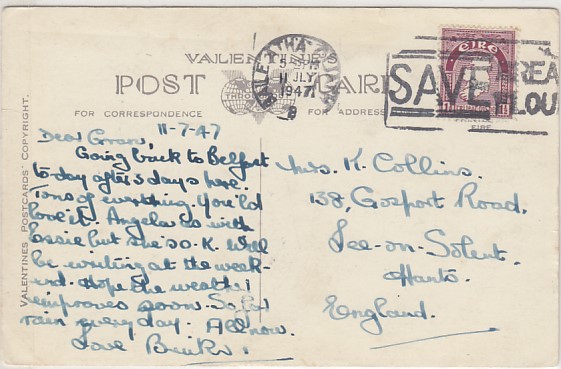 VALENTINE'S
POST CARD
FOR CORRESPONDENCE
FOR ADDRESS
BAILE ÁTHA CLIATH
5
11 JLY
1947
8
SAVE BREAD
FLOUR
ÉIRE
EIRE
VALENTINES POSTCARDS' COPYRIGHT.
11-7-47
Dear
Going back to Belfast
to-day after 3 days here.
Tons of everything. You'ld
love it. Angela is with
Essie but she's O.K. Will
be writing at the week-
end. Hope the weather
improves soon. So far
rain every day. All now.
Love
Mrs. K. Collins.
138, Gosport Road,
Lee-on-Solent.
Hants.
England.